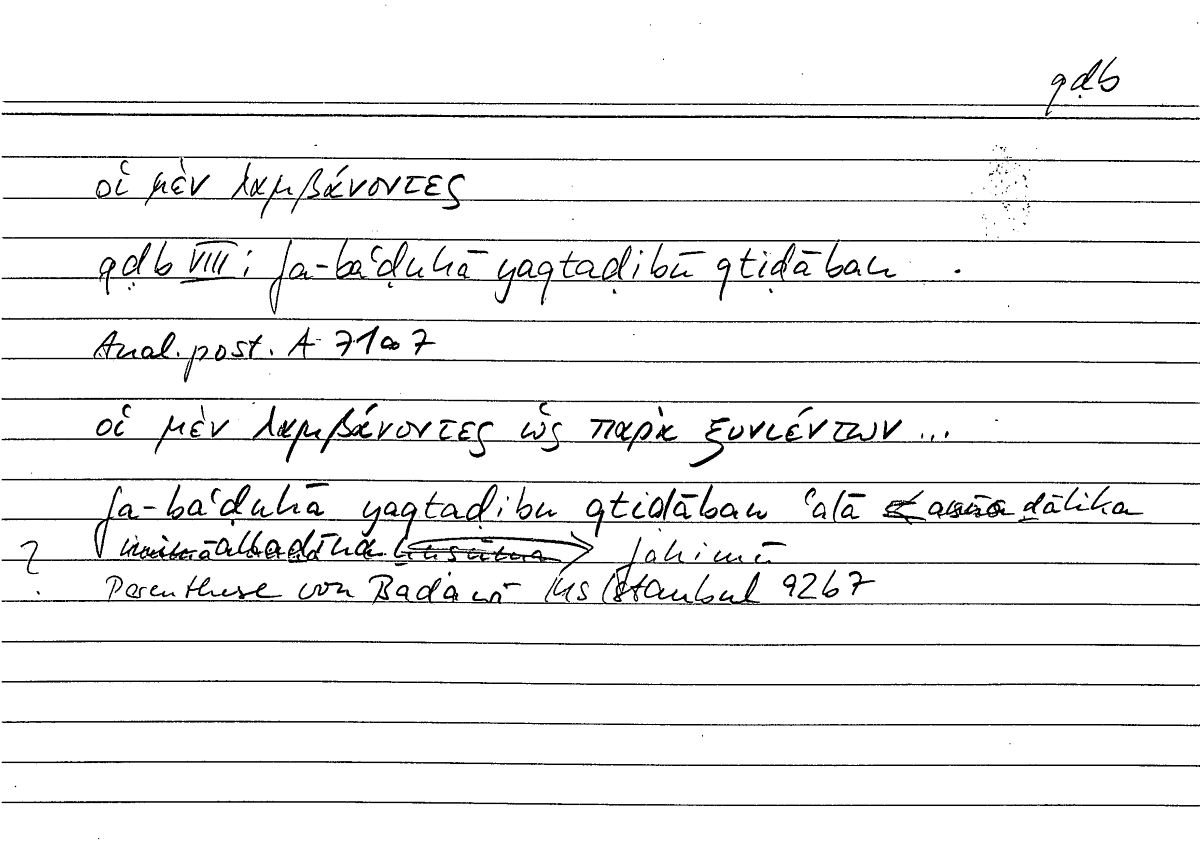 qḍb
οἱ μὲν λαμβάνοντες
qḍb VIII: fa-baʿḍuhā yaqtaḍibū qtiḍāban .
Anal. post. A 71a7
οἱ μὲν λαμβάνοντες ὡς παρὰ ξυνιέντων ...
fa-baʿḍuhā yaqtaḍibu qtiḍāban ʿalā ḏālika
? fahimū
Parenthese von Badawī Ms Istanbul 9267